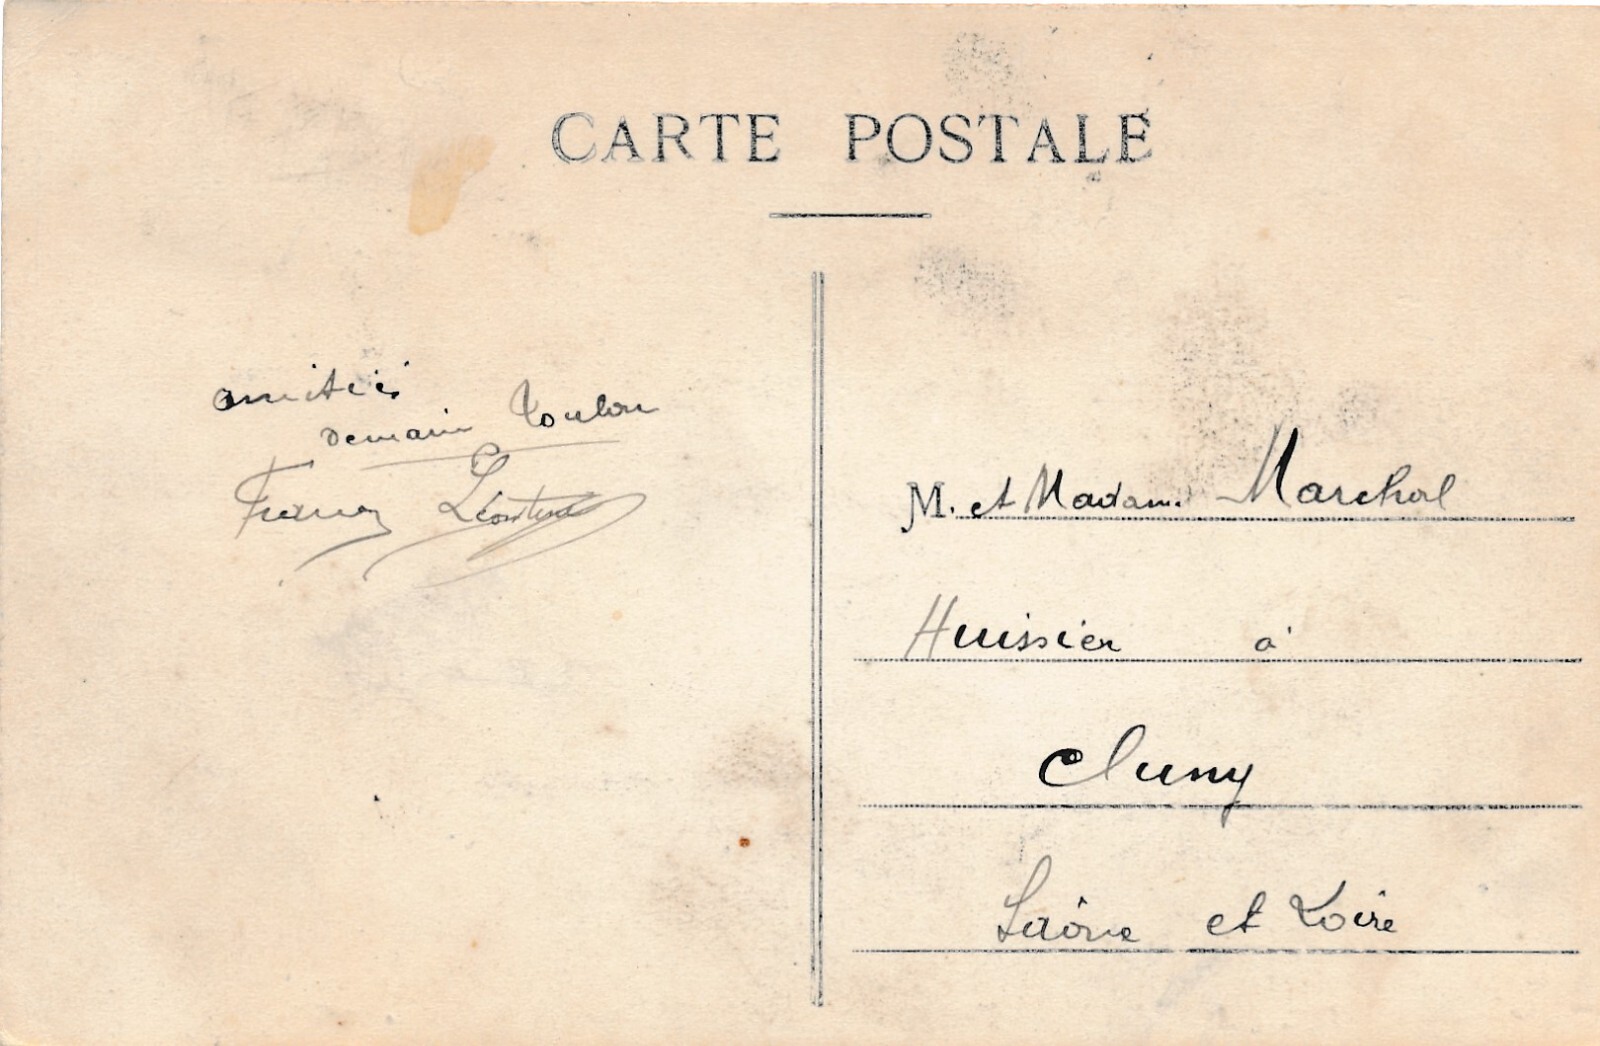 CARTE POSTALE
amitiés
demain Toulon
Léontine
M. et Madame Marchal
Huissier à
Cluny
Saône et Loire